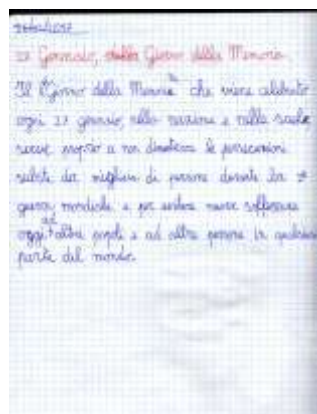 27 Gennaio, dalla Giorno della Memoria
Il "Giorno della Memoria" che viene celebrato
ogni 27 gennaio, nella nazione e nelle scuole
serve proprio a non dimenticare le persecuzioni
subite da migliaia di persone durante la 2ª
guerra mondiale e per evitare nuove sofferenze
oggi ad altri popoli e ad altre persone in qualsiasi
parte del mondo.